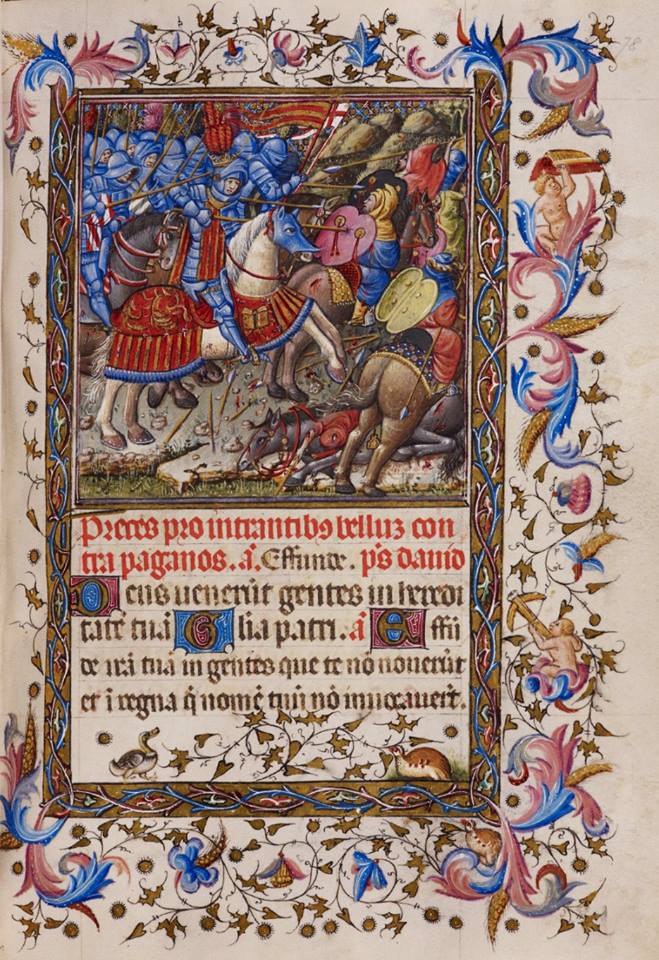 78
Preces pro intrantibꝯ belluz con
tra paganos. a̅. Effunde. ps̅ dauid
Deus uenerūt gentes in heredi
tatē tuā Glia patri. a̅ Effū
de irā tuā in gentes que te nō nouerūt
et ī regna q̄ nomē tuū nō inuocauer̄t.